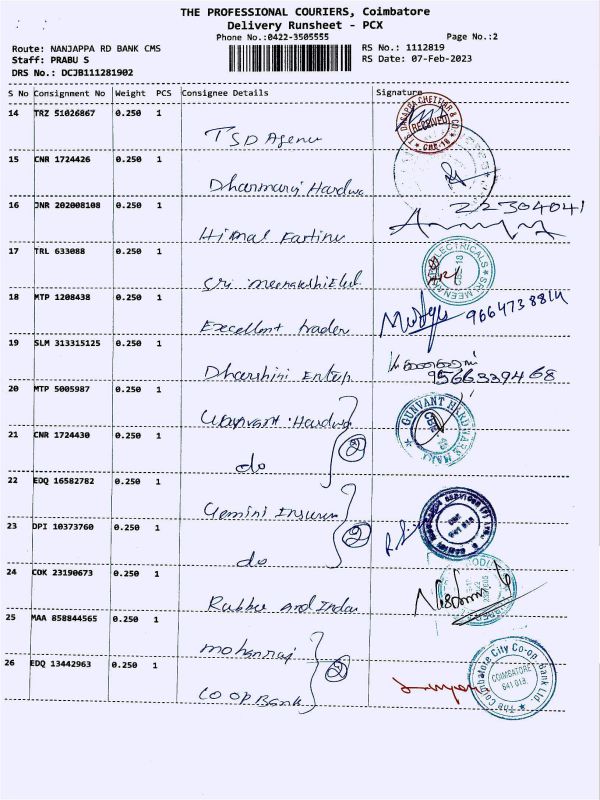 THE PROFESSIONAL COURIERS, Coimbatore
Delivery Runsheet - PCX
Phone No.:0422-3505555 Page No.:2
Route: NANJAPPA RD BANK CMS RS No.: 1112819
Staff: PRABU S RS Date: 07-Feb-2023
DRS No.: DCJB111281902
S No Consignment No Weight PCS Consignee Details Signature
14 TRZ 51026867 0.250 1
RECEIVED
TSD Agency
15 CNR 1724426 0.250 1
Dharmaraj Hardwa
16 JNR 202008108 0.250 1 22304041
17 TRL 633088 0.250 1
Sri meenakshi Elel
18 MTP 1208438 0.250 1
Excellent trader 9664738814
19 SLM 313315125 0.250 1
Dharshini Entep 9566339468
20 MTP 5005987 0.250 1
Gunvant Hardwa GUNVANT HARDWARE MART
21 CNR 1724430 0.250 1 2
do
22 EDQ 16582782 0.250 1
Gemini Insuren
23 DPI 10373760 0.250 1 2
do
24 COK 23190673 0.250 1
Rubber and Indus
25 MAA 858844565 0.250 1
mohanraj
26 EDQ 13442963 0.250 1 2
CO OP Bank The Coimbatore City Co-op. Bank Ltd COIMBATORE 641 018.